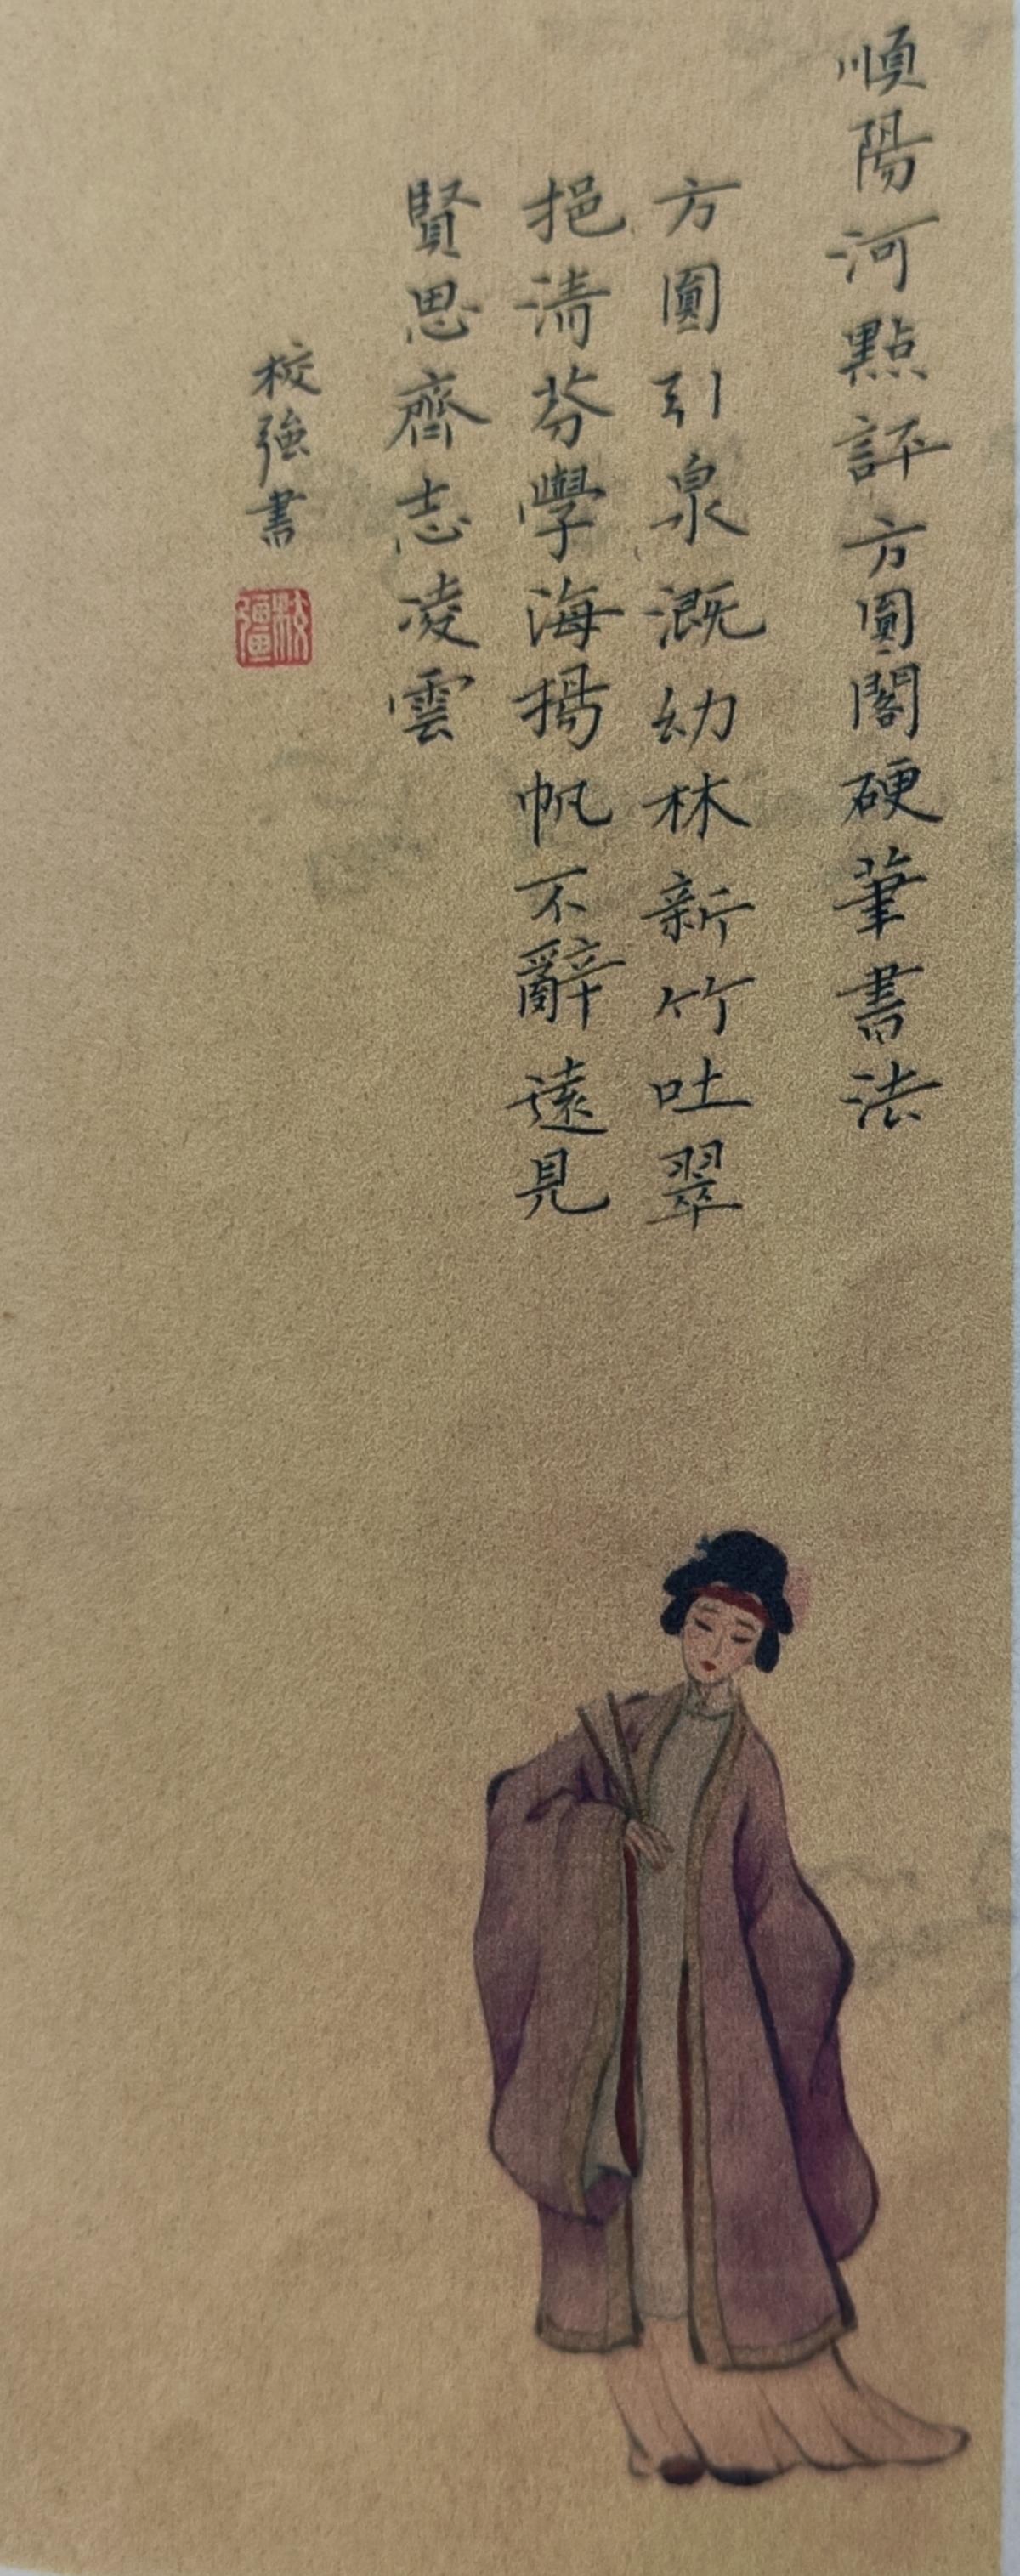 順陽河點評方圓閣硬筆書法
方圓引泉溉幼林新竹吐翠
挹清芬學海揚帆不辭遠見
賢思齊志凌雲
校強書
校彊